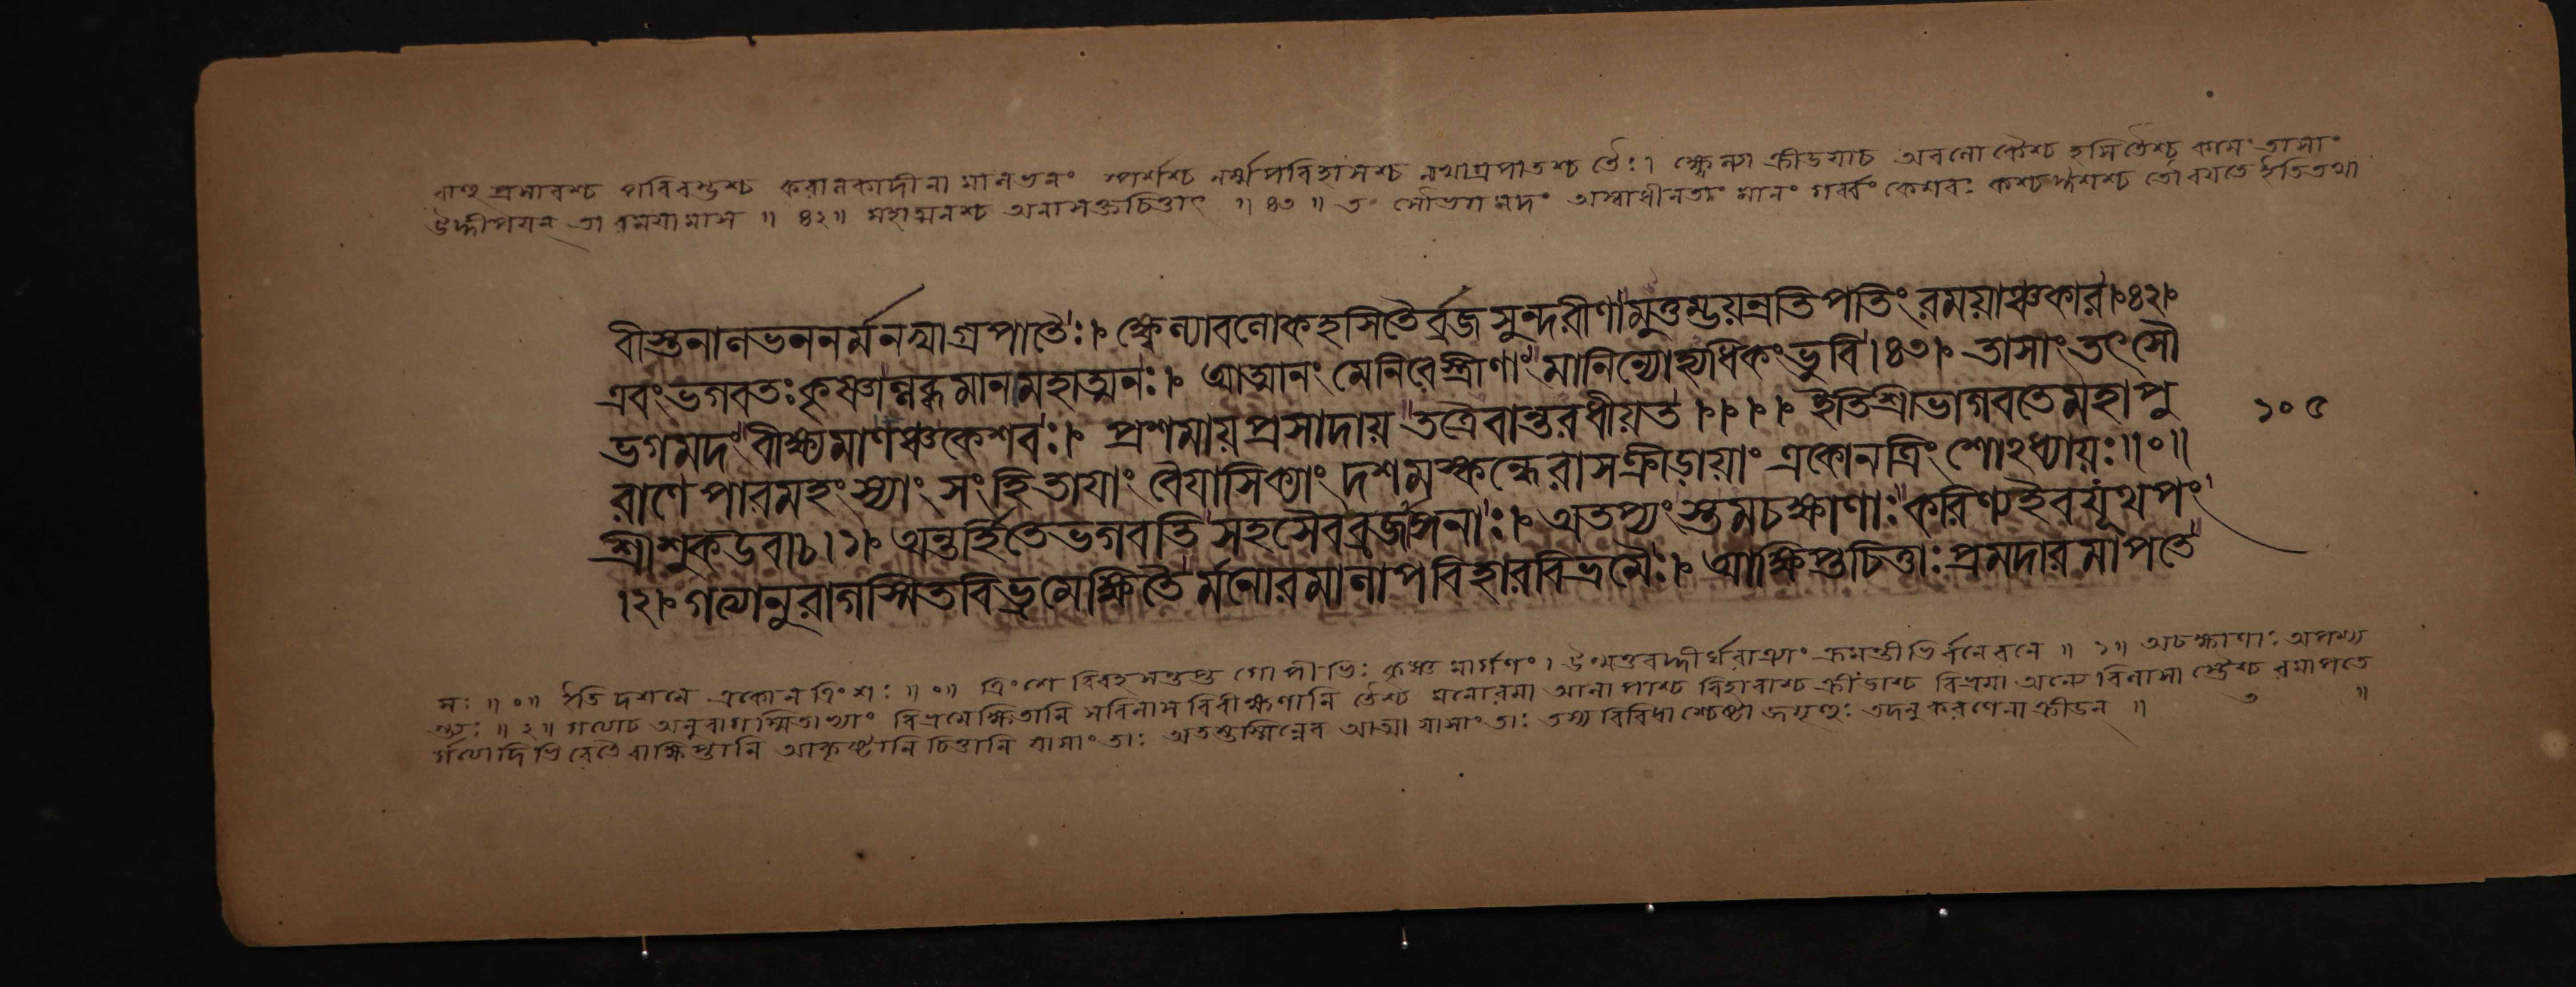 বাহু প্রসারশ্চ পরিরম্ভশ্চ করালকাদীনা মালভনং স্পর্শশ্চ নর্ম্মপরিহাসশ্চ নখাগ্রপাতশ্চ তৈঃ। ক্ষ্বেল্যা ক্রীডয়াচ অবলোকৈশ্চ হসিতৈশ্চ কামং তাসাং
উদ্দীপয়ন্ তা রময়ামাস ॥ ৪২॥ মহাত্মনশ্চ অনাসক্তচিত্তাৎ ॥ ৪৩ ॥ তং সৌভগমদং অস্বাধীনতাং মানং গর্ব্বং কেশবঃ কশ্চ ঈশশ্চ তৌ বয়তে ইতিতথা
বীস্তনালভননর্মনখাগ্রপাতৈঃ। ক্ষ্বেল্যাবলোকহসিতৈর্ব্রজসুন্দরীণামুত্তম্ভয়ন্রতিপতিংরময়াঞ্চকার।৪২।
এবংভগবতঃকৃষ্ণাল্লব্ধমানামহাত্মনঃ। আত্মানং মেনিরেস্ত্রীণাং মানিন্যোহ্যধিকংভুবি।৪৩। তাসাংতৎসৌ
ভগমদং বীক্ষ্যমাণঞ্চকেশবঃ। প্রশমায়প্রসাদায় তত্রৈবান্তরধীয়ত ।।।। ইতিশ্রীভাগবতেমহাপু
১০৫
রাণে পারমহংস্যাং সংহিতায়াং বৈয়াসিক্যাং দশমস্কন্ধেরাসক্রীড়ায়াং একোনত্রিংশোঽধ্যায়ঃ॥০॥
শ্রীশুকউবাচ।১। অন্তর্হিতেভগবতি সহসৈবব্রজাঙ্গনাঃ। অতপ্যংস্তমচক্ষাণাঃকরিণ্যইবযূথপং
।২। গত্যানুরাগস্মিতবিভ্রমেক্ষিতৈর্মনোরমালাপবিহারবিভ্রমৈঃ। আক্ষিপ্তচিত্তাঃপ্রমদারমাপতে
সঃ ॥০॥ ইতি দশমে একোনত্রিংশঃ ॥০॥ ত্রিংশে বিরহসন্তপ্ত গোপীভিঃ কৃষ্ণ মার্গণং। উন্মত্তবদ্দীর্ঘরাত্র্যাং ভ্রমন্তীভির্বনে বনে ॥ ১॥ অচক্ষাণাঃ অপশ্য
ন্ত্যঃ ॥ ২॥ গত্যাচ অনুরাগস্মিতাভ্যাং বিভ্রমেক্ষিতানি সবিলাস বিরীক্ষণানি তৈশ্চ মনোরমা আলাপাশ্চ বিহারাশ্চ ক্রীডাশ্চ বিভ্রমা অন্যে বিলাসা স্তৈশ্চ রমাপতে
র্গত্যাদিভি রেতৈ রাক্ষিপ্তানি আকৃষ্টানি চিত্তানি যাসাং তাঃ অতস্তস্মিন্নেব আত্মা যাসাং তাঃ তস্য বিবিধা শ্চেষ্টা জগৃহুঃ তদনুকরণেনাক্রীডন্ ॥ ৩ ॥